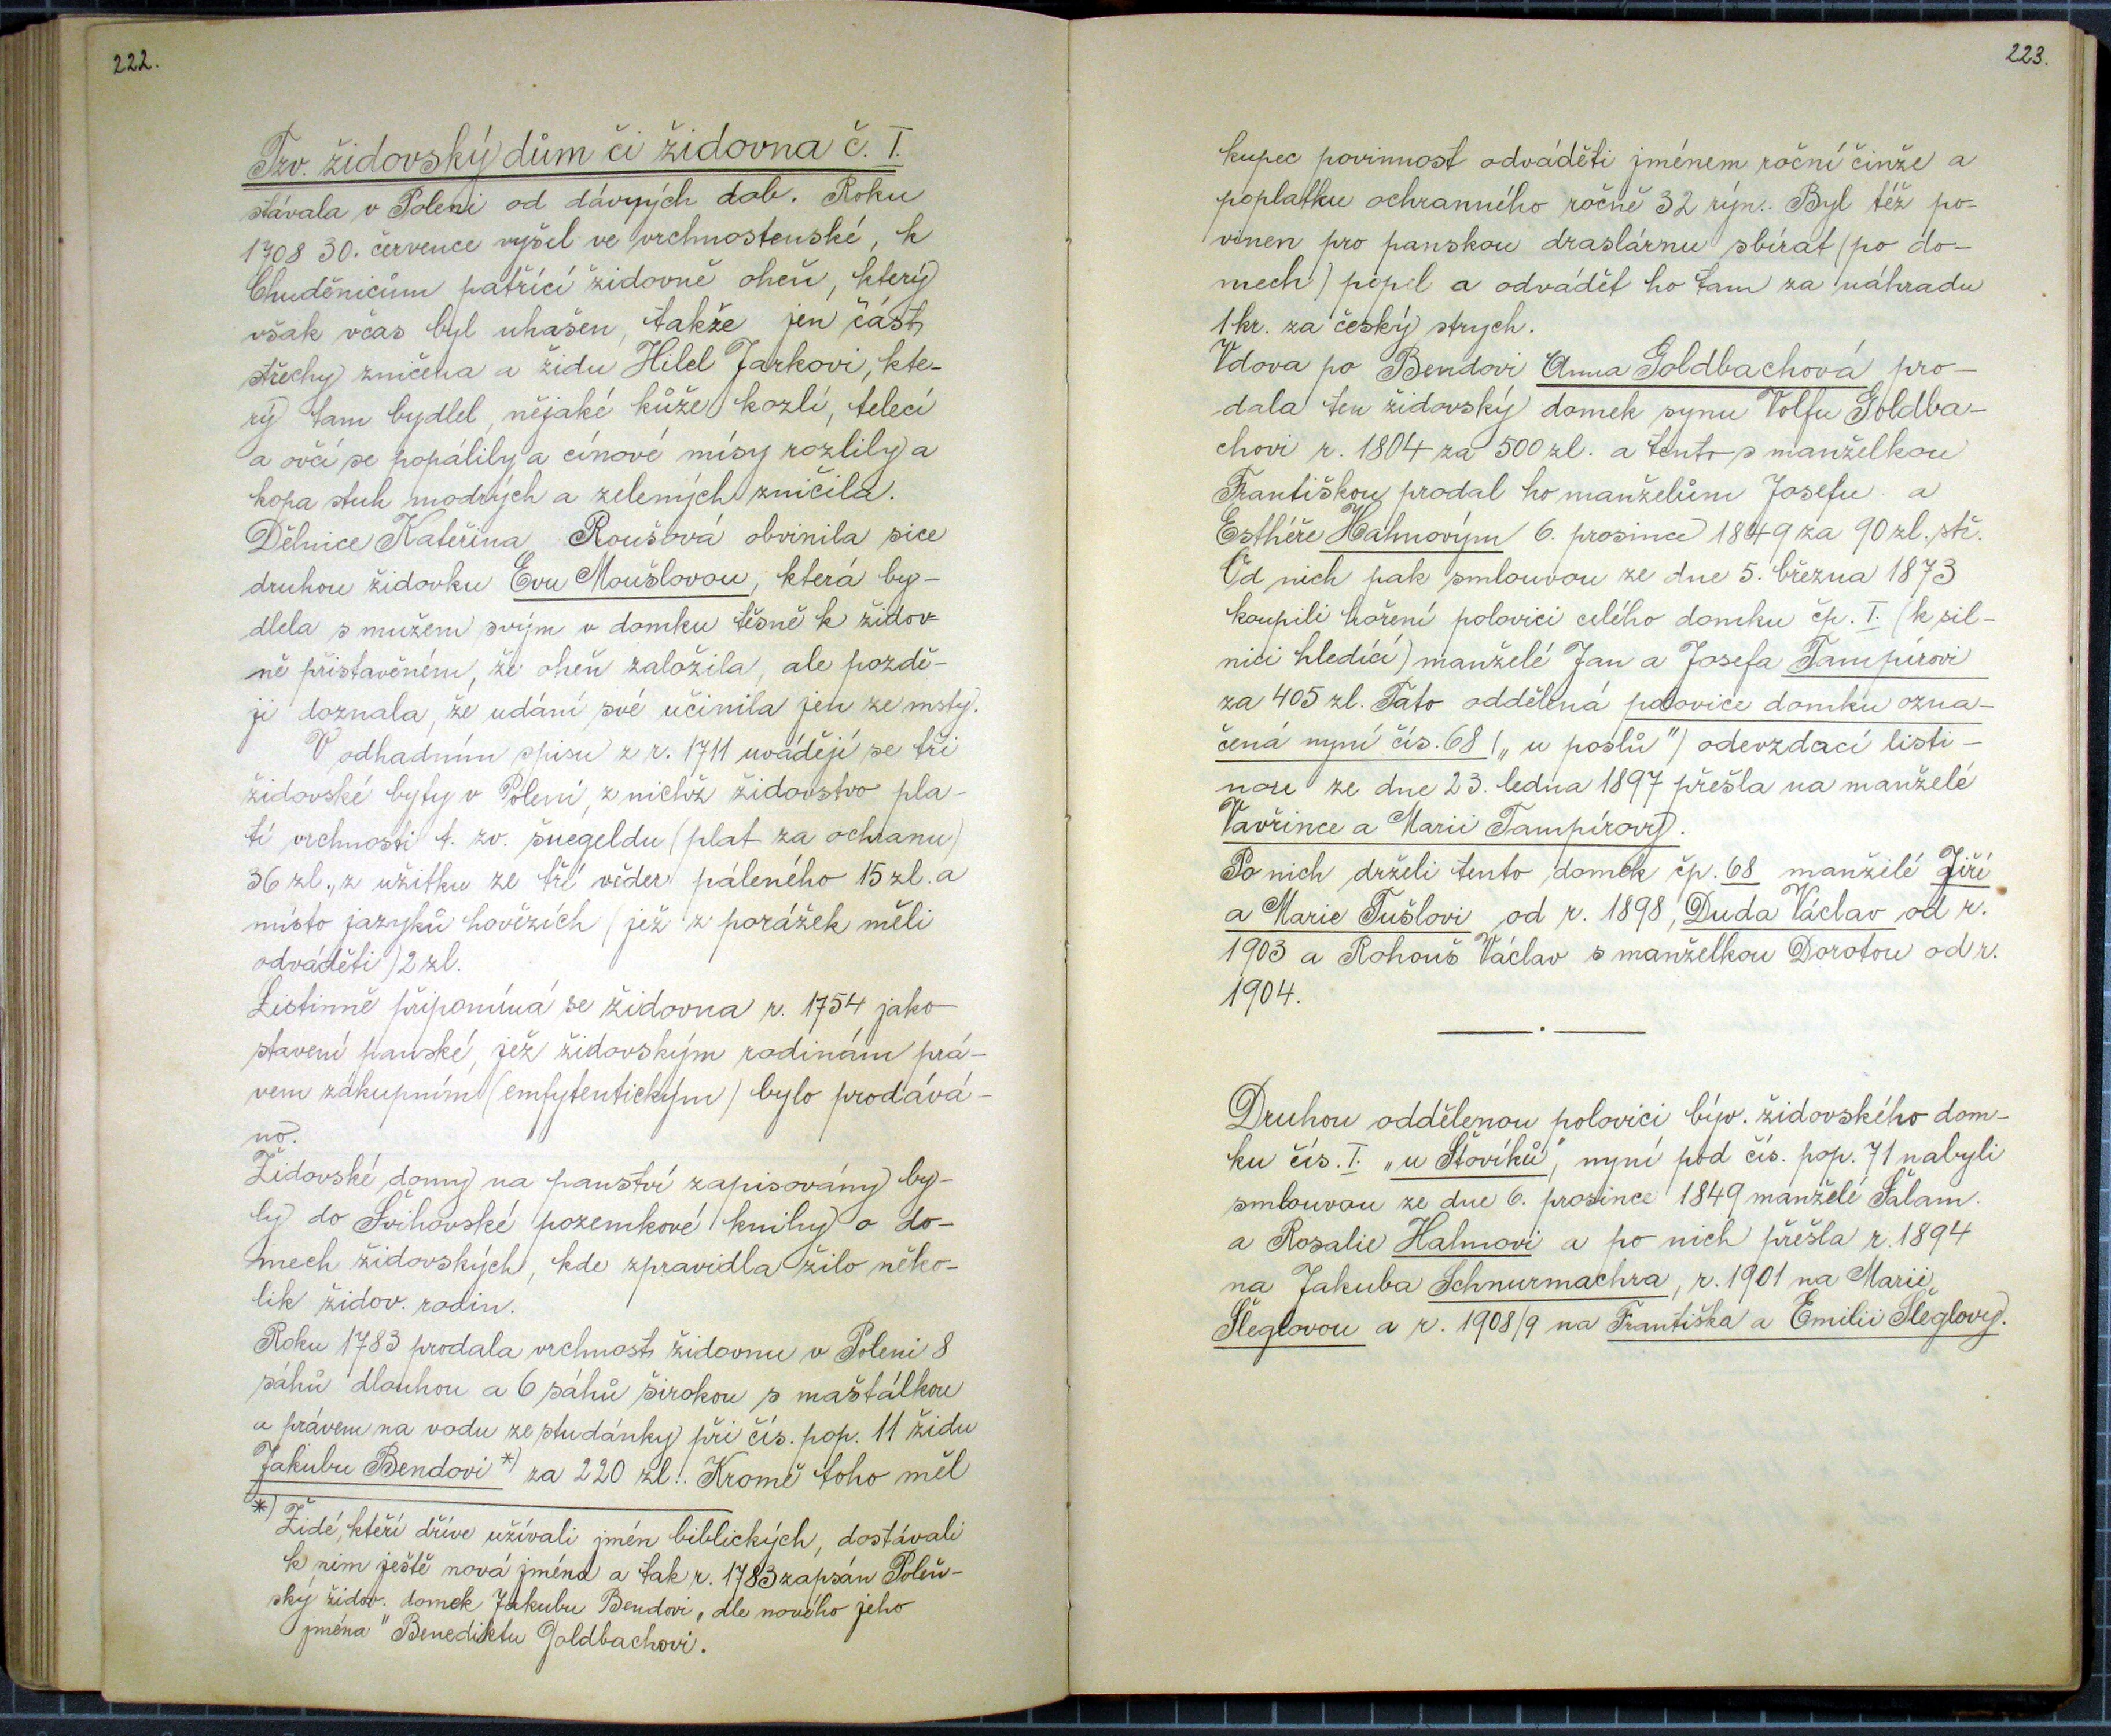 222.
Tzv. židovský dům či židovna č. I.
stávala v Poleni od dávných dob. Roku
1708 30. července vyšel ve vrchnostenské, k
Chuděnicům patřící židovně oheň, který
však včas byl uhašen, takže jen část
střechy zničena a židu Hilel Jarkovi, kte-
rý tam bydlel, nějaké kůže kozlí, telecí
a ovčí se popálily a cínové mísy rozlily a
kopa stuh modrých a zelených zničila.
Dělnice Kateřina Roušová obvinila sice
druhou židovku Evu Moušlovou, která by-
dlela s mužem svým v domku těsně k židov-
ně přistavěném, že oheň založila, ale pozdě-
ji doznala, že udání své učinila jen ze msty.
V odhadním spisu z r. 1711 uvádějí se tři
židovské byty v Poleni, z nichž židovstvo pla-
tí vrchnosti t. zv. šucgeldu (plat za ochranu)
36 zl., z užitku ze tří věder páleného 15 zl. a
místo jazyků hovězích (jež z porážek měli
odváděti) 2 zl.
Listinně připomíná se židovna r. 1754 jako
stavení panské, jež židovským rodinám prá-
vem zákupním (emfyteutickým) bylo prodává-
no.
Židovské domy na panství zapisovány by-
ly do Švihovské pozemkové knihy o do-
mech židovských, kde zpravidla žilo něko-
lik židov. rodin.
Roku 1783 prodala vrchnost židovnu v Poleni 8
sáhů dlouhou a 6 sáhů širokou s maštálkou
a právem na vodu ze studánky při čís. pop. 11 židu
Jakubu Bendovi *) za 220 zl. Kromě toho měl
*) Židé, kteří dříve užívali jmén biblických, dostávali
k nim ještě nová jména a tak r. 1783 zapsán Poleň-
ský židov. domek Jakubu Bendovi, dle nového jeho
jména" Benediktu Goldbachovi.
223.
kupec povinnost odváděti jménem roční činže a
poplatku ochranného ročně 32 rýn. Byl též po-
vinen pro panskou draslárnu sbírat (po do-
mech) popel a odvádět ho tam za náhradu
1 kr. za český strych.
Vdova po Bendovi Anna Goldbachová pro-
dala ten židovský domek synu Volfu Goldba-
chovi r. 1804 za 500 zl. a tento s manželkou
Františkou prodal ho manželům Josefu a
Esthéře Hahnovým 6. prosince 1849 za 90 zl. stř.
Od nich pak smlouvou ze dne 5. března 1873
koupili hoření polovici celého domku čp. I. (k sil-
nici hledící) manželé Jan a Josefa Tampírovi
za 405 zl. Tato oddělená polovice domku ozna-
čená nyní čís. 68 („u poslů") odevzdací listi-
nou ze dne 23. ledna 1897 přešla na manželé
Vavřince a Marii Tampírovy.
Po nich drželi tento domek čp. 68 manželé Jiří
a Marie Tušlovi od r. 1898, Duda Václav od r.
1903 a Rohouš Václav s manželkou Dorotou od r.
1904.
Druhou oddělenou polovici býv. židovského dom-
ku čís. I. „u Šťovíků", nyní pod čís. pop. 71 nabyli
smlouvou ze dne 6. prosince 1849 manželé Šalam.
a Rosalie Hahnovi a po nich přešla r. 1894
na Jakuba Schnurmachra, r. 1901 na Marii
Šleglovou a r. 1908/9 na Františka a Emilii Šleglovy.